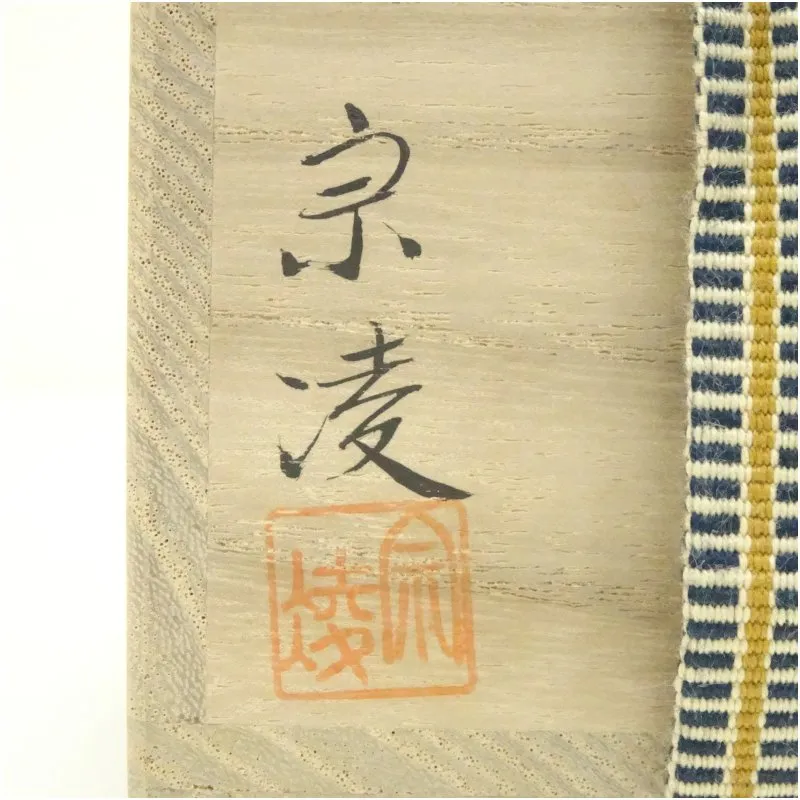 宗凌
宗凌